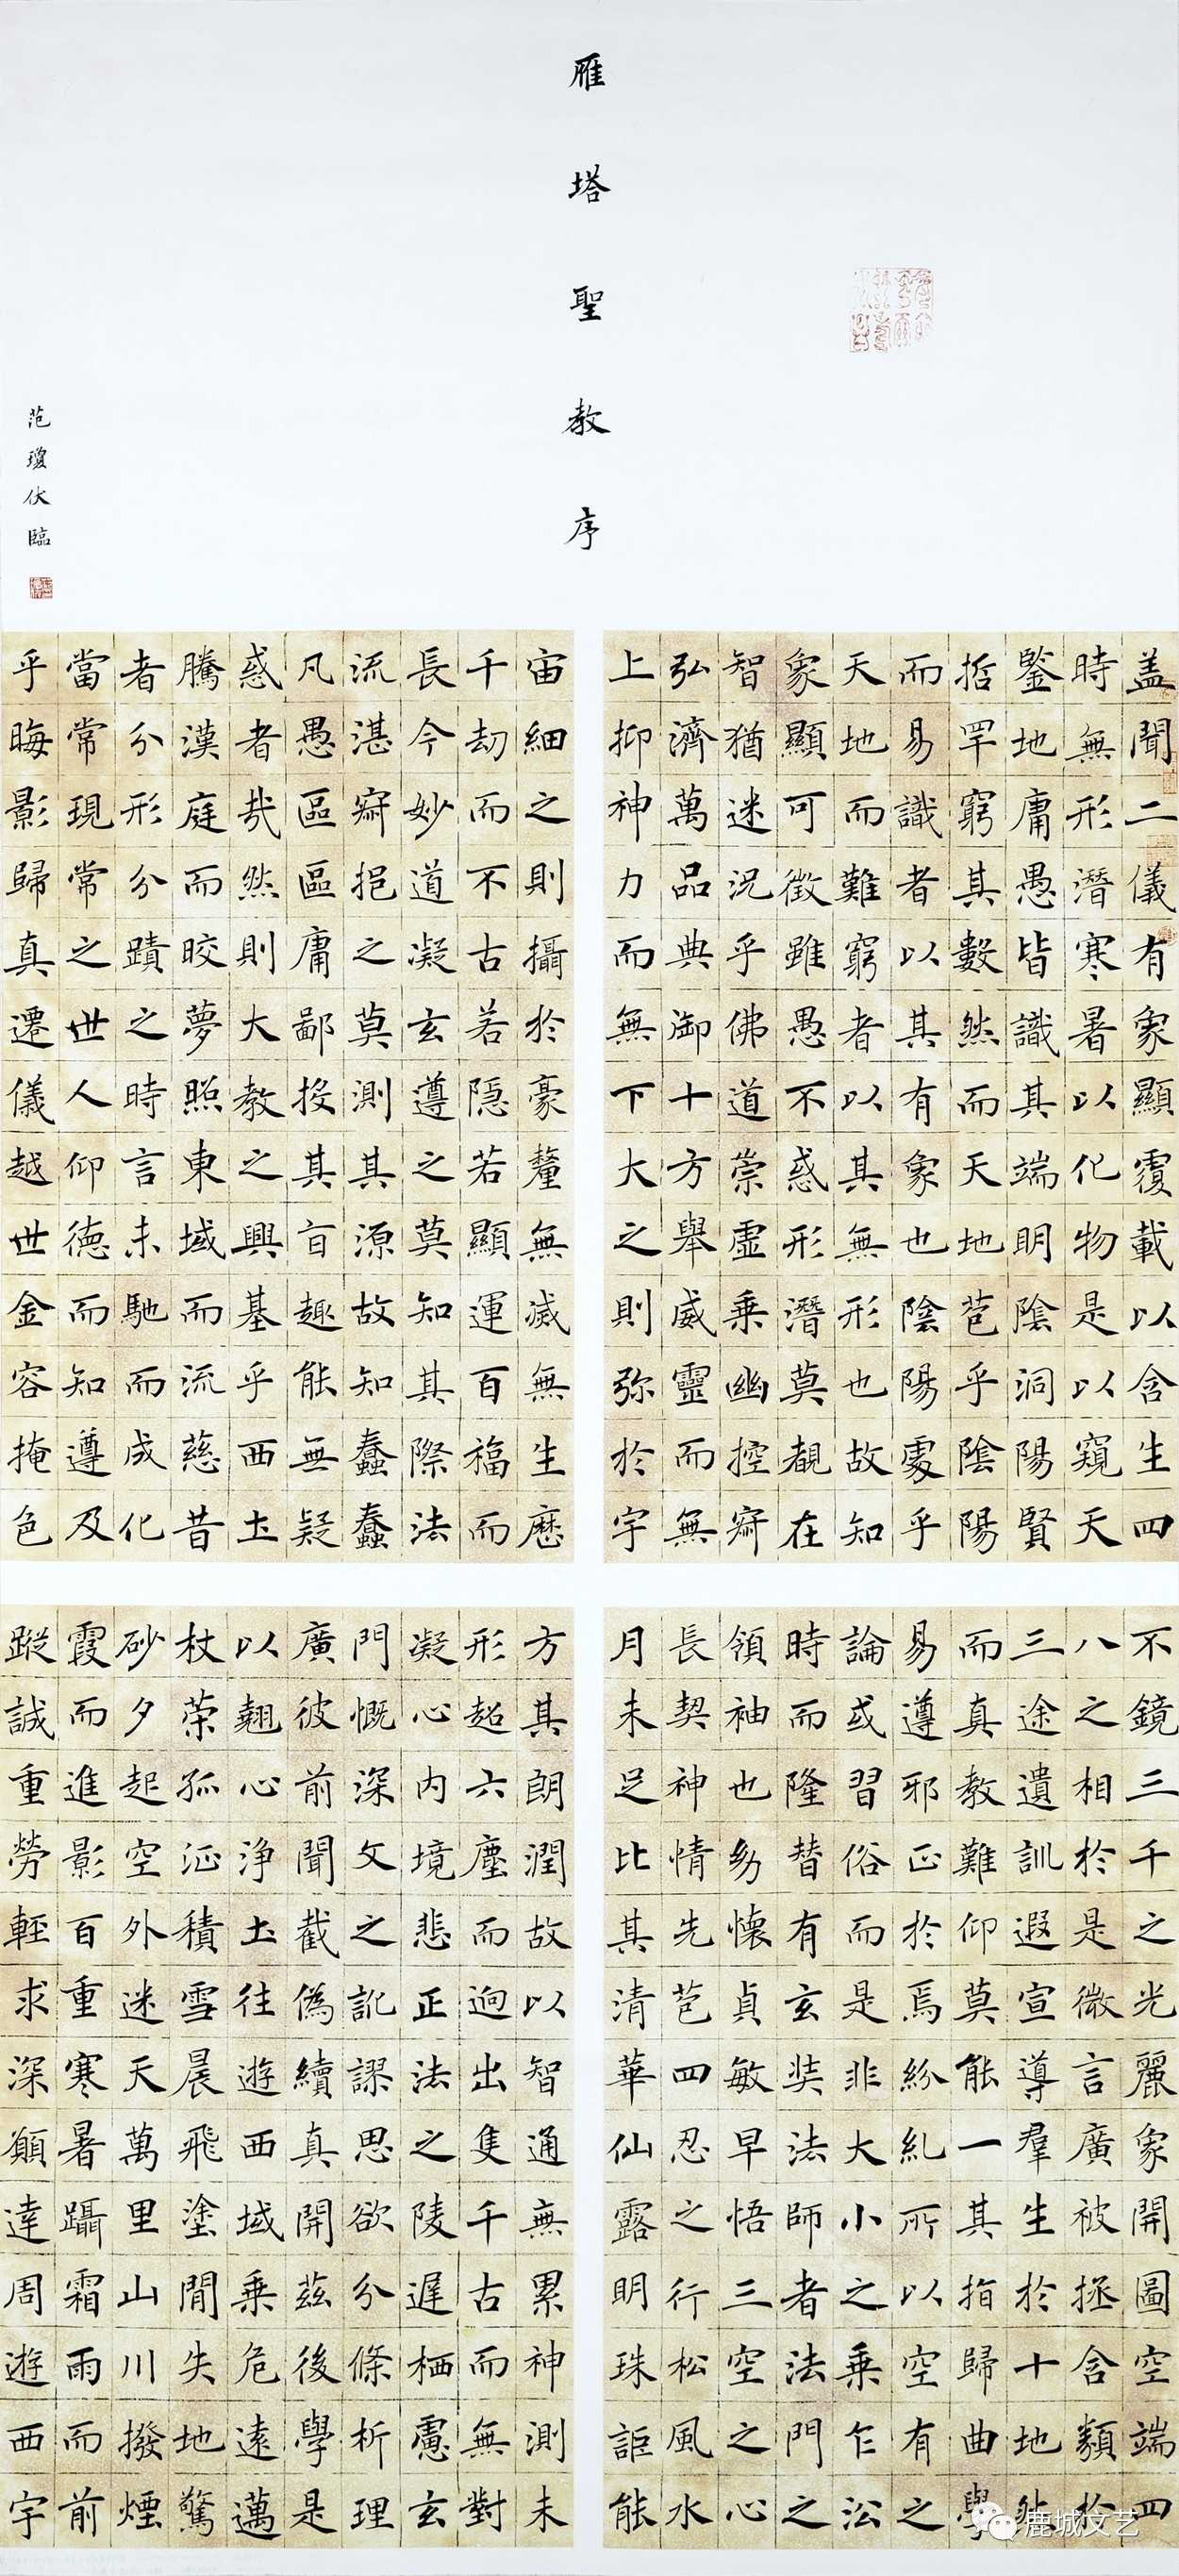 雁塔聖教序
盖聞二儀有象顯覆載以含生四
時無形潛寒暑以化物是以窺天
鑒地庸愚皆識其端明陰洞陽賢
哲罕窮其數然而天地苞乎陰陽
而易識者以其有象也陰陽處乎
天地而難窮者以其無形也故知
象顯可徵雖愚不惑形潛莫覩在
智猶迷況乎佛道崇虛乘幽控寂
弘濟萬品典御十方舉威靈而無
上抑神力而無下大之則弥於宇
宙細之則攝於豪釐無滅無生歷
千劫而不古若隱若顯運百福而
長今妙道凝玄遵之莫知其際法
流湛寂挹之莫測其源故知蠢蠢
凡愚區區庸鄙投其旨趣能無疑
惑者哉然則大教之興基乎西土
騰漢庭而晈夢照東域而流慈昔
者分形分蹟之時言未馳而成化
當常現常之世人仰德而知遵及
乎晦影歸真遷儀越世金容掩色
不鏡三千之光麗象開圖空端四
八之相於是微言廣被拯含類於
三途遺訓遐宣導羣生於十地然
而真教難仰莫能一其指歸曲學
易遵邪正於焉紛糺所以空有之
論或習俗而是非大小之乘乍沿
時而隆替有玄奘法師者法門之
領袖也幼懷貞敏早悟三空之心
長契神情先苞四忍之行松風水
月未足比其清華仙露明珠詎能
方其朗潤故以智通無累神測未
形超六塵而迥出隻千古而無對
凝心内境悲正法之陵遲栖慮玄
門慨深文之訛謬思欲分條析理
廣彼前聞截偽續真開茲後學是
以翹心淨土往遊西域乘危遠邁
杖策孤征積雪晨飛塗間失地驚
砂夕起空外迷天萬里山川撥煙
霞而進影百重寒暑躡霜雨而前
蹤誠重勞輕求深願達周遊西宇
范瓊伏臨
鹿城文艺